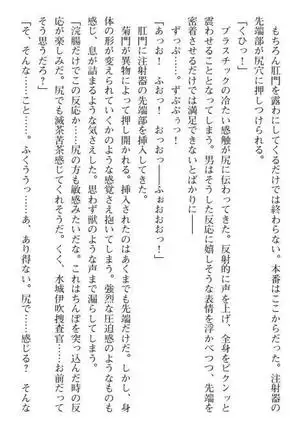 もちろん肛門を露わにしてくるだけでは終わらない。本番はここからだった。注射器の
先端部が尻穴に押しつけられる。
「くひっ！」
プラスチックの冷たい感触が尻に伝わってきた。反射的に声を上げ、全身をビクンッと
震わせることとなってしまう。男はそうした反応に嬉しそうな表情を浮かべつつ、先端を
密着させるだけでは満足できないとばかりに――
ずっぷっ……。ずぷぷうっ！
「あっお！　ふおっ！　おっおっ――ふぉおおおっ！」
肛門に注射器の先端部を挿入してきた。
菊門が異物によって押し開かれる。挿入されたのはあくまでも先端だけだ。しかし、身
体の形が変えられていくかのような感覚さえ抱いてしまう。強烈な圧迫感のようなものも
感じ、息が詰まるような気さえした。思わず獣のような声まで漏らしてしまう。
「浣腸だけでこの反応か……尻の方も敏感みたいだな。これはちんぽを突っ込んだ時の反
応が楽しみだ。尻でも滅茶苦茶感じてくれそうだ。くく、水城伊吹捜査官……お前だって
そう思うだろ？」
「そ、そんな……こと……。ふくううっ……あ、あり得ない。尻で……感じる？　そんな